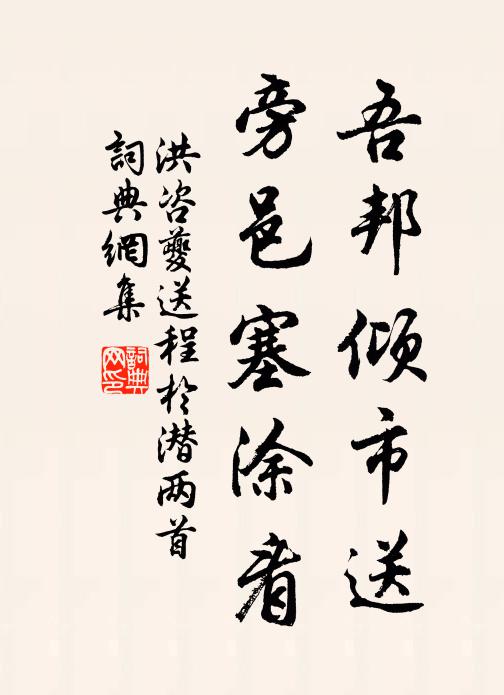 吾邦倾市送
旁邑塞涂看
洪咨夔送程於潜两首
詞典網集
詞典
网印